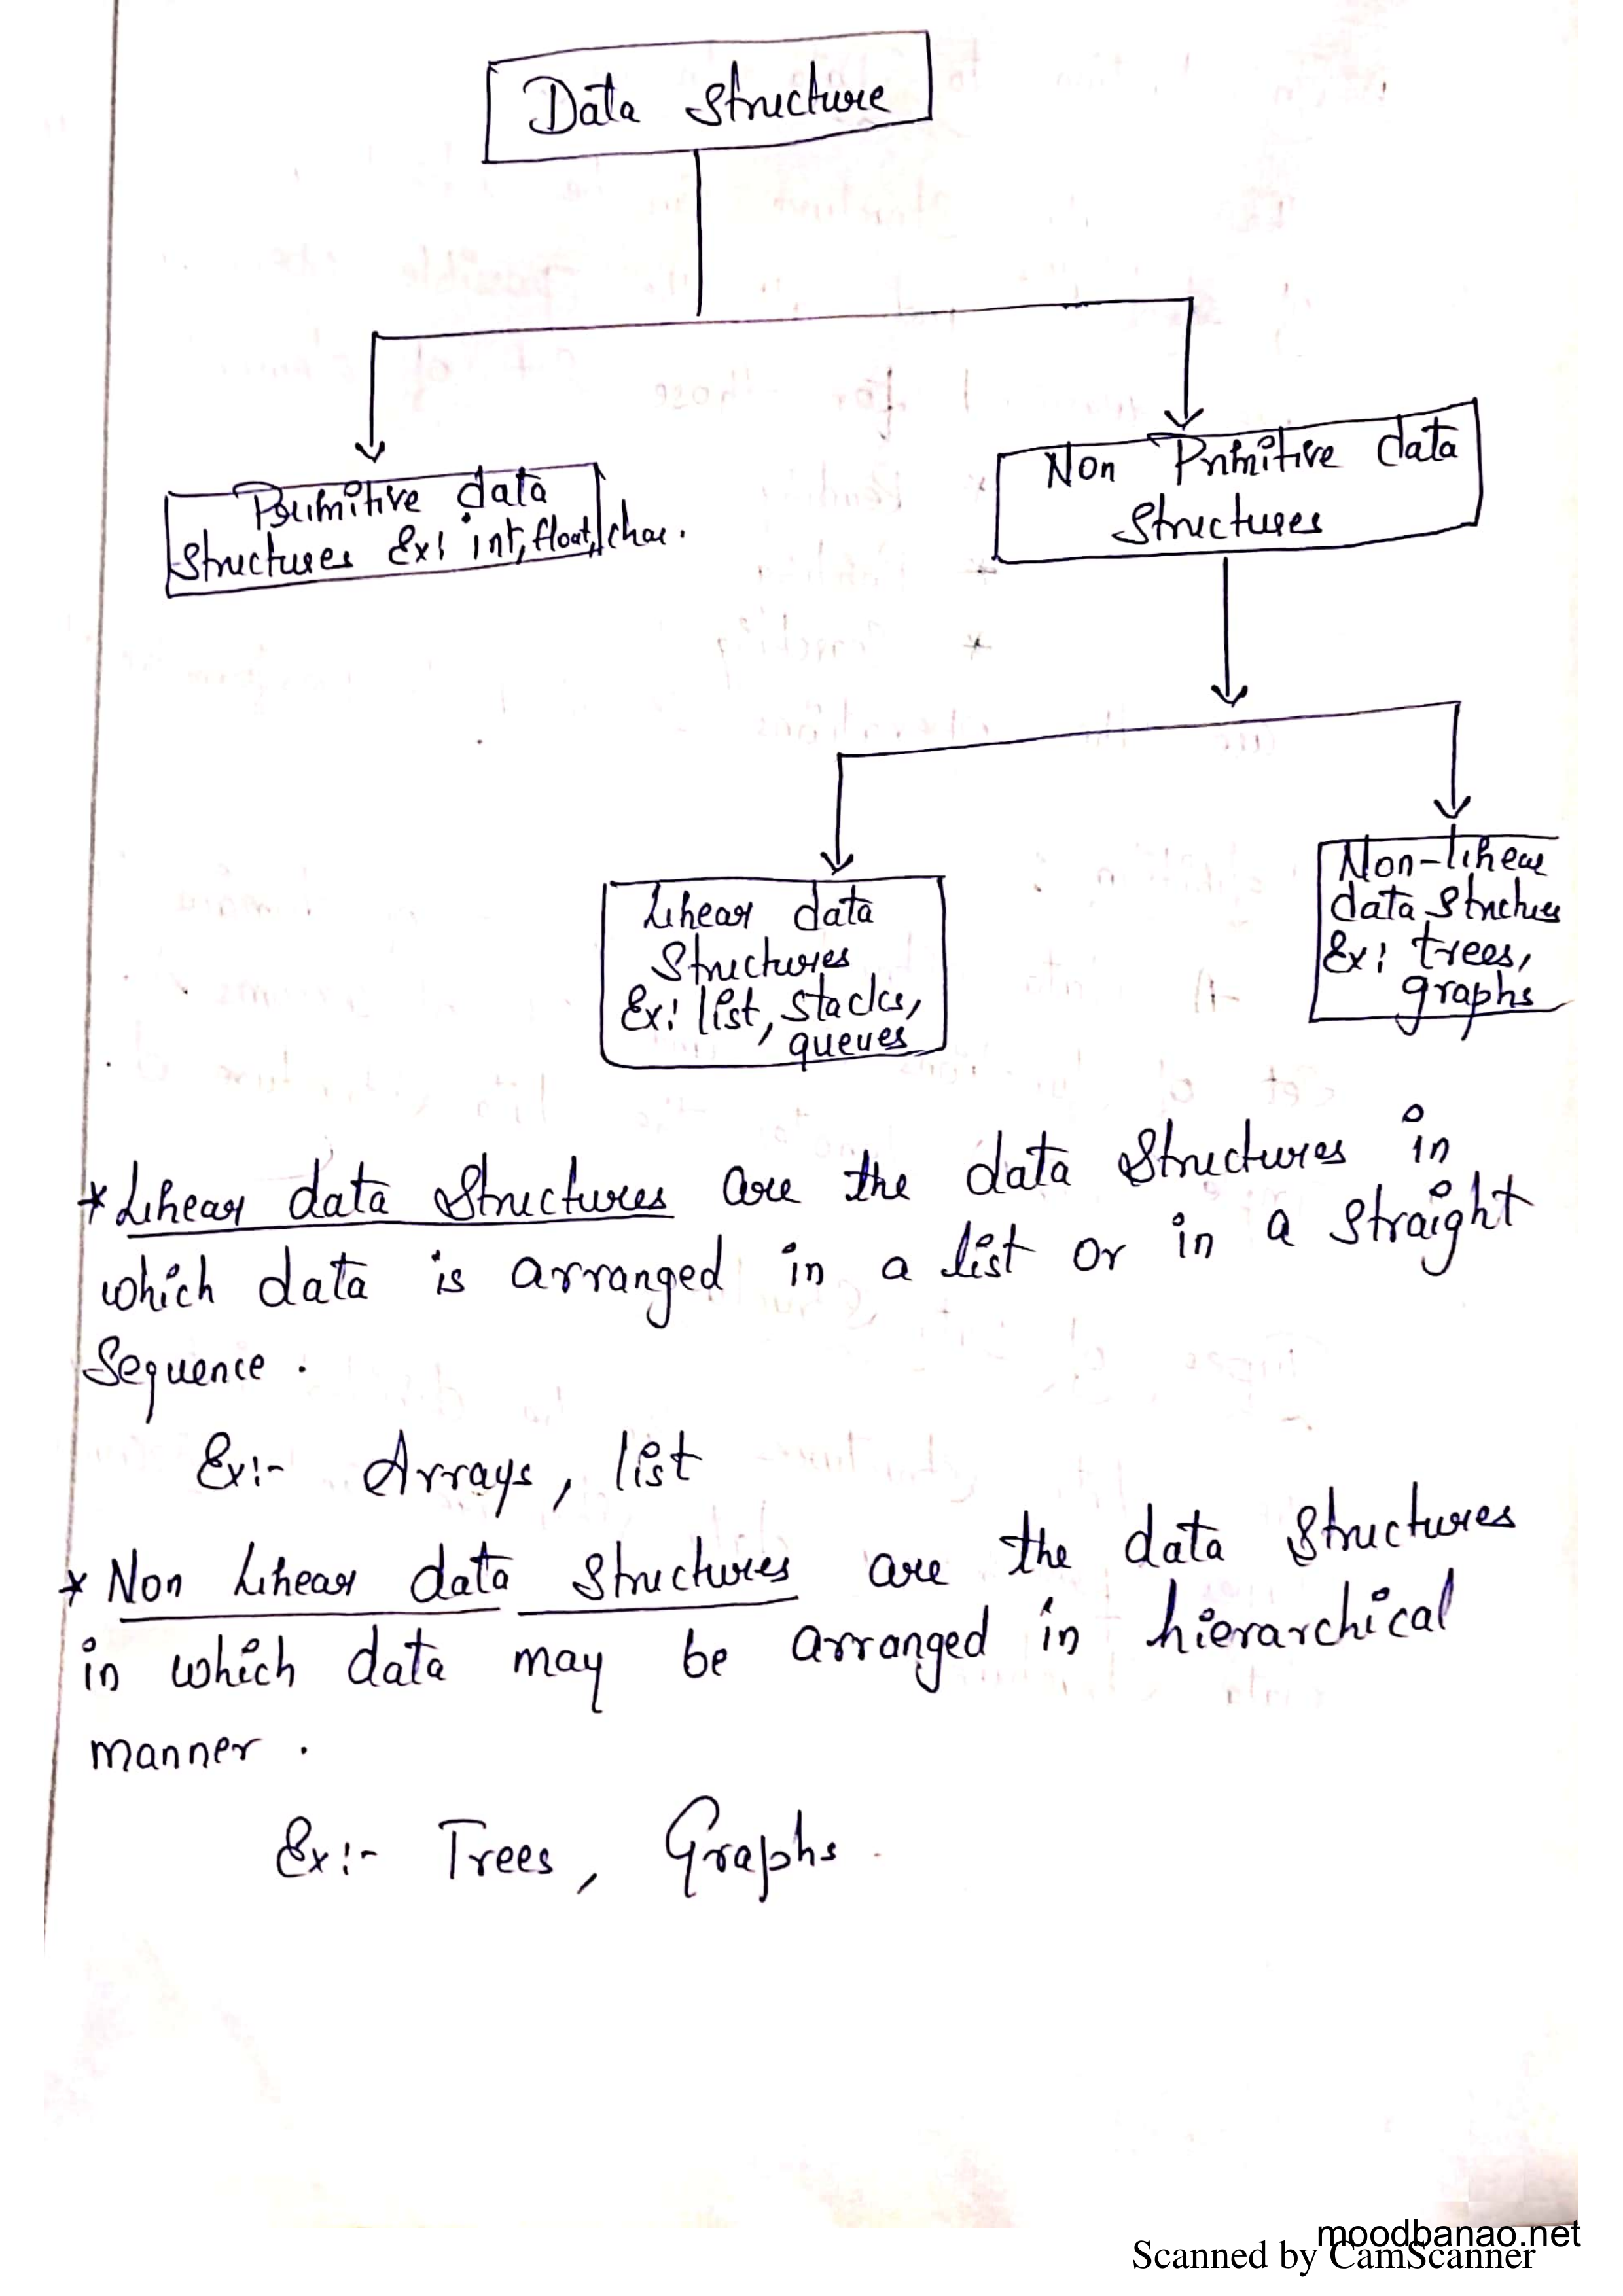 Data Structure
Primitive data
Structures Ex: int, float, char.
Non Primitive data
Structures
Linear data
Structures
Ex: list, stacks,
queues
Non-linear
data structures
Ex: trees,
graphs
* Linear data structures are the data structures in
which data is arranged in a list or in a straight
Sequence.
Ex:- Arrays, list
* Non Linear data structures are the data structures
in which data may be arranged in hierarchical
manner.
Ex:- Trees, Graphs.
moodbanao.net
Scanned by CamScanner